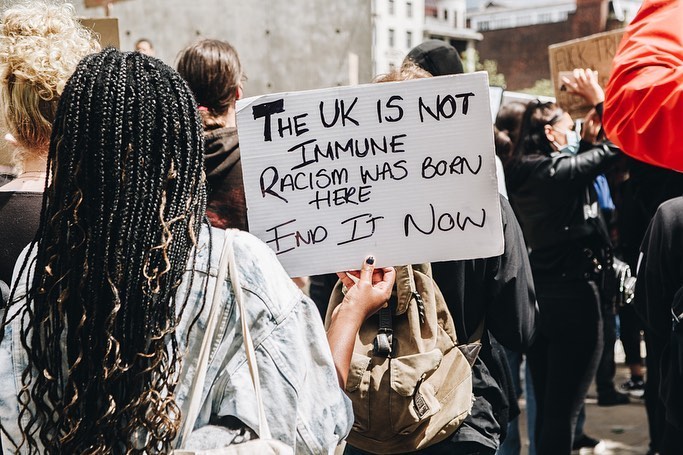 THE UK IS NOT
IMMUNE
RACISM WAS BORN
HERE
END IT NOW